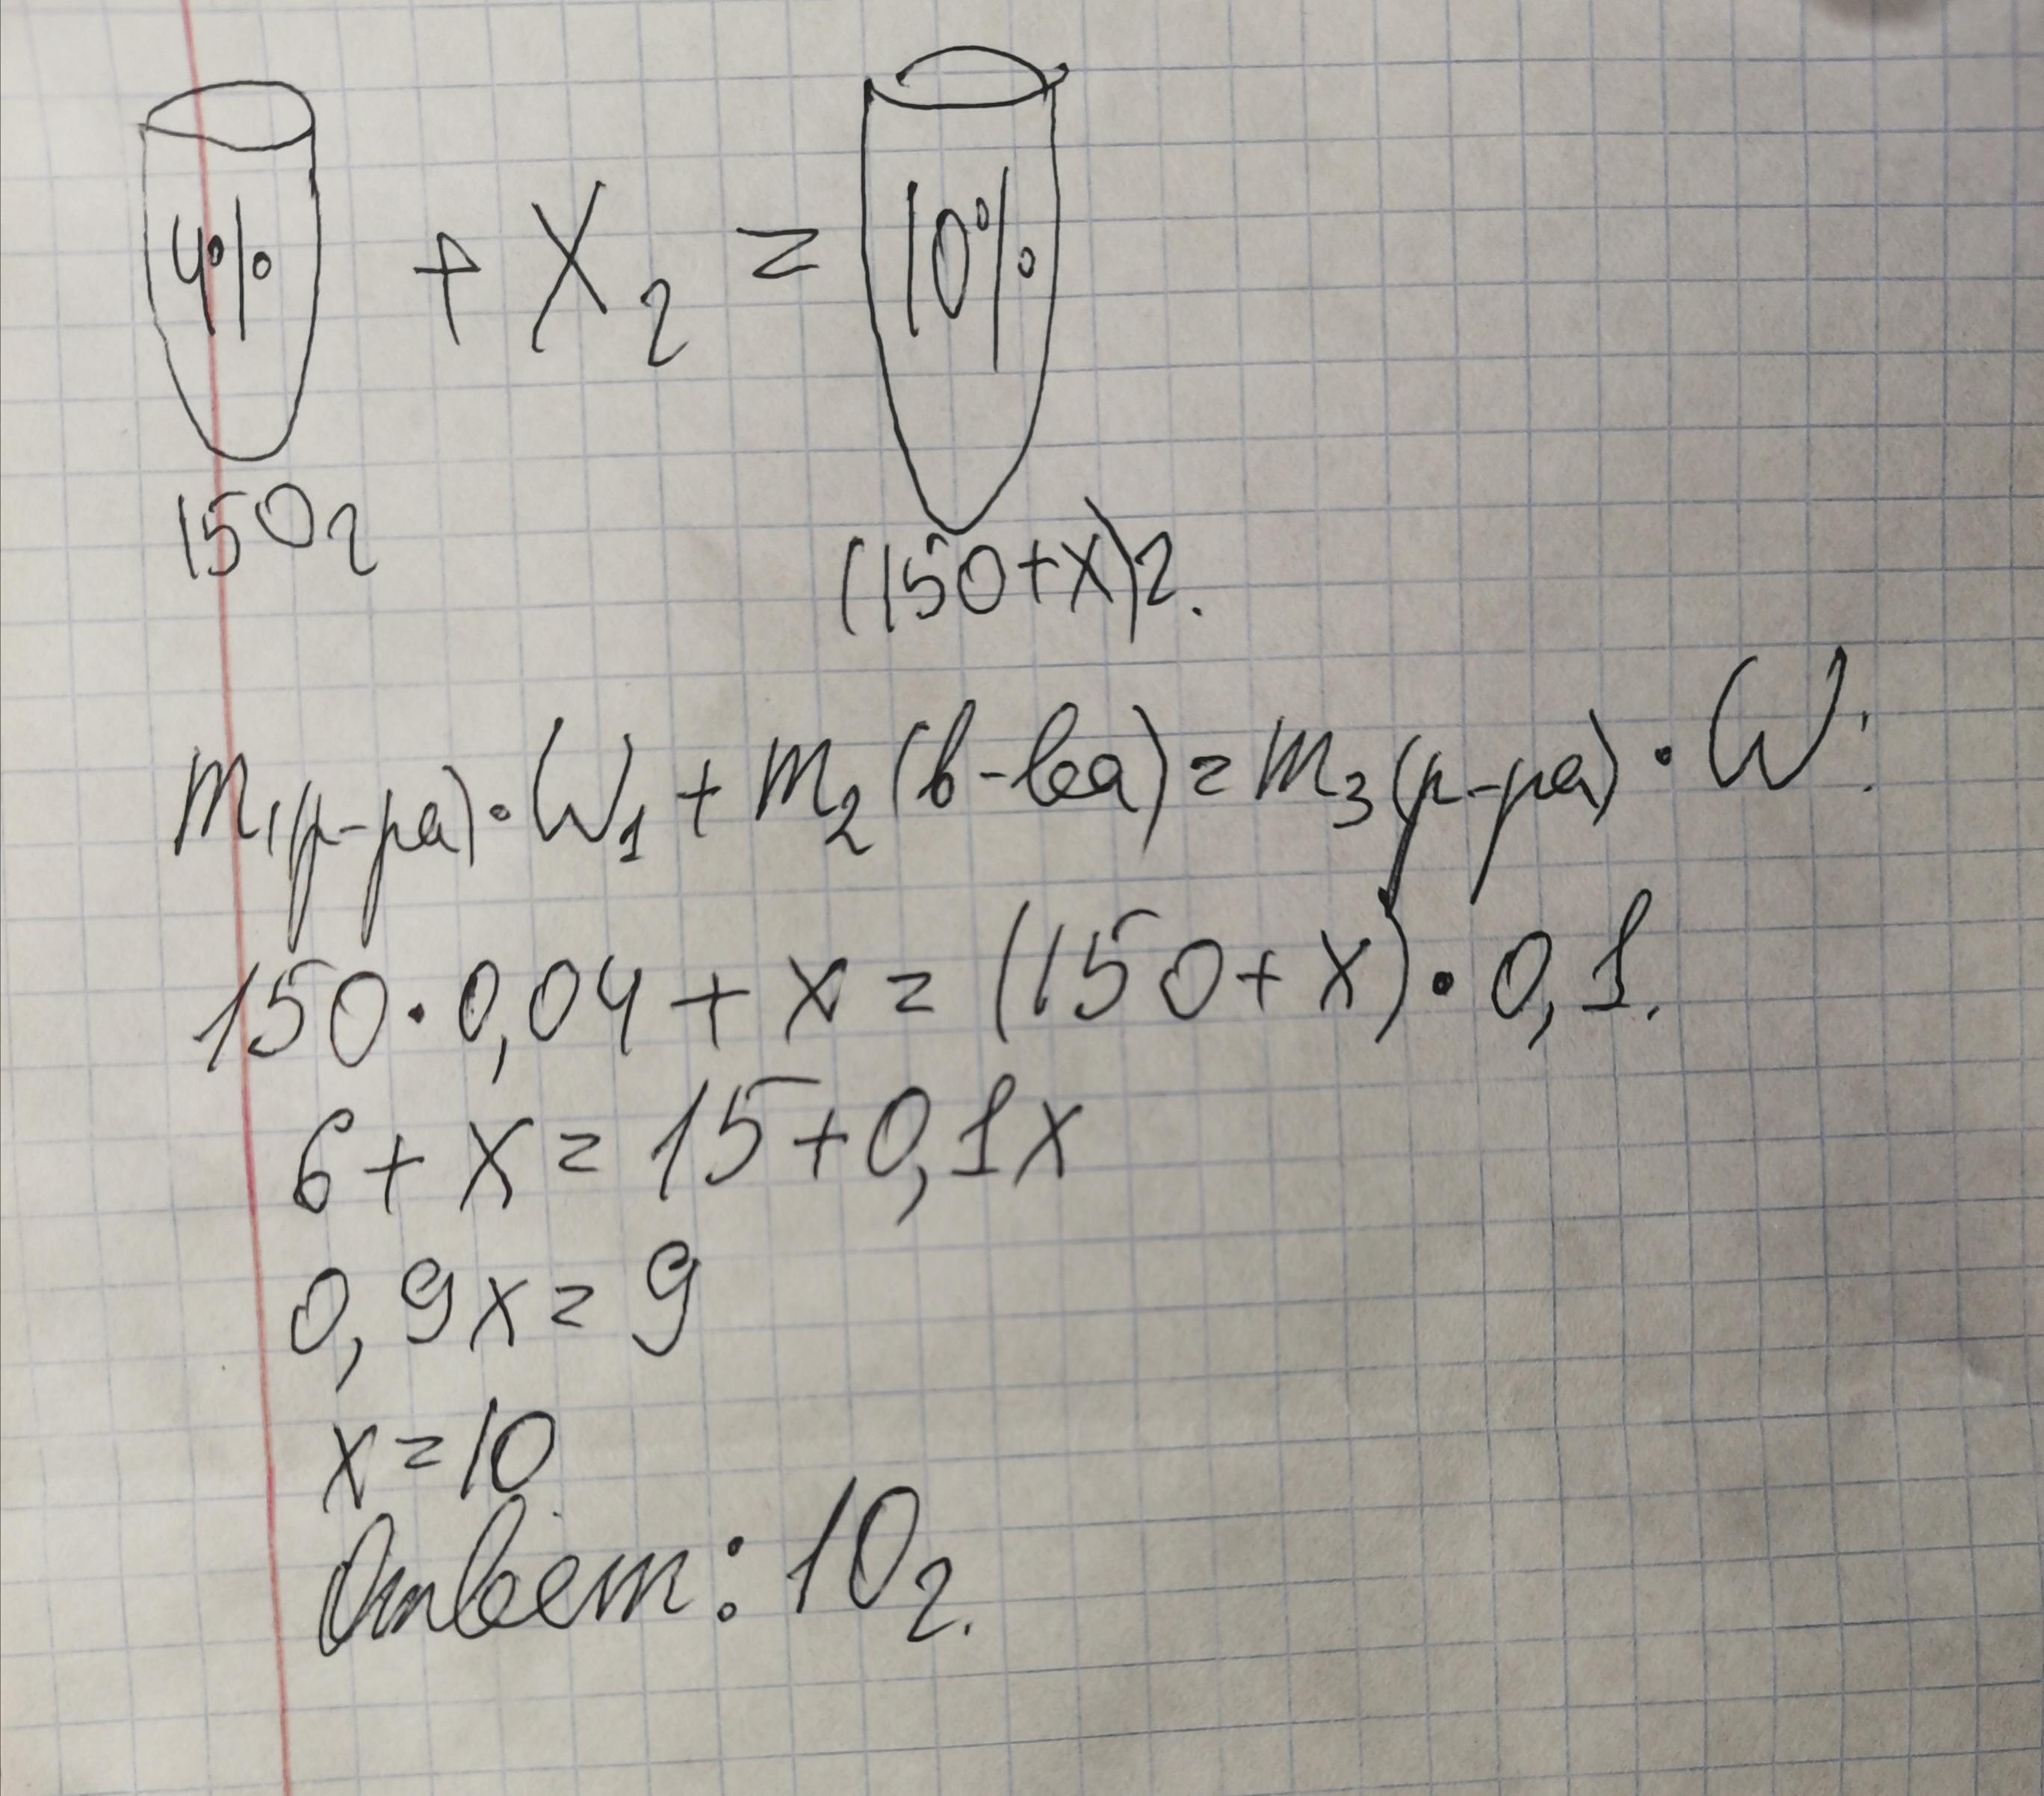 4% + X г = 10%
150г
(150+X)г.
m₁(р-ра)·W₁+m₂(в-ва)=m₃(р-ра)·W:
150·0,04+x=(150+x)·0,1.
6+x=15+0,1x
0,9x=9
x=10
Ответ: 10г.